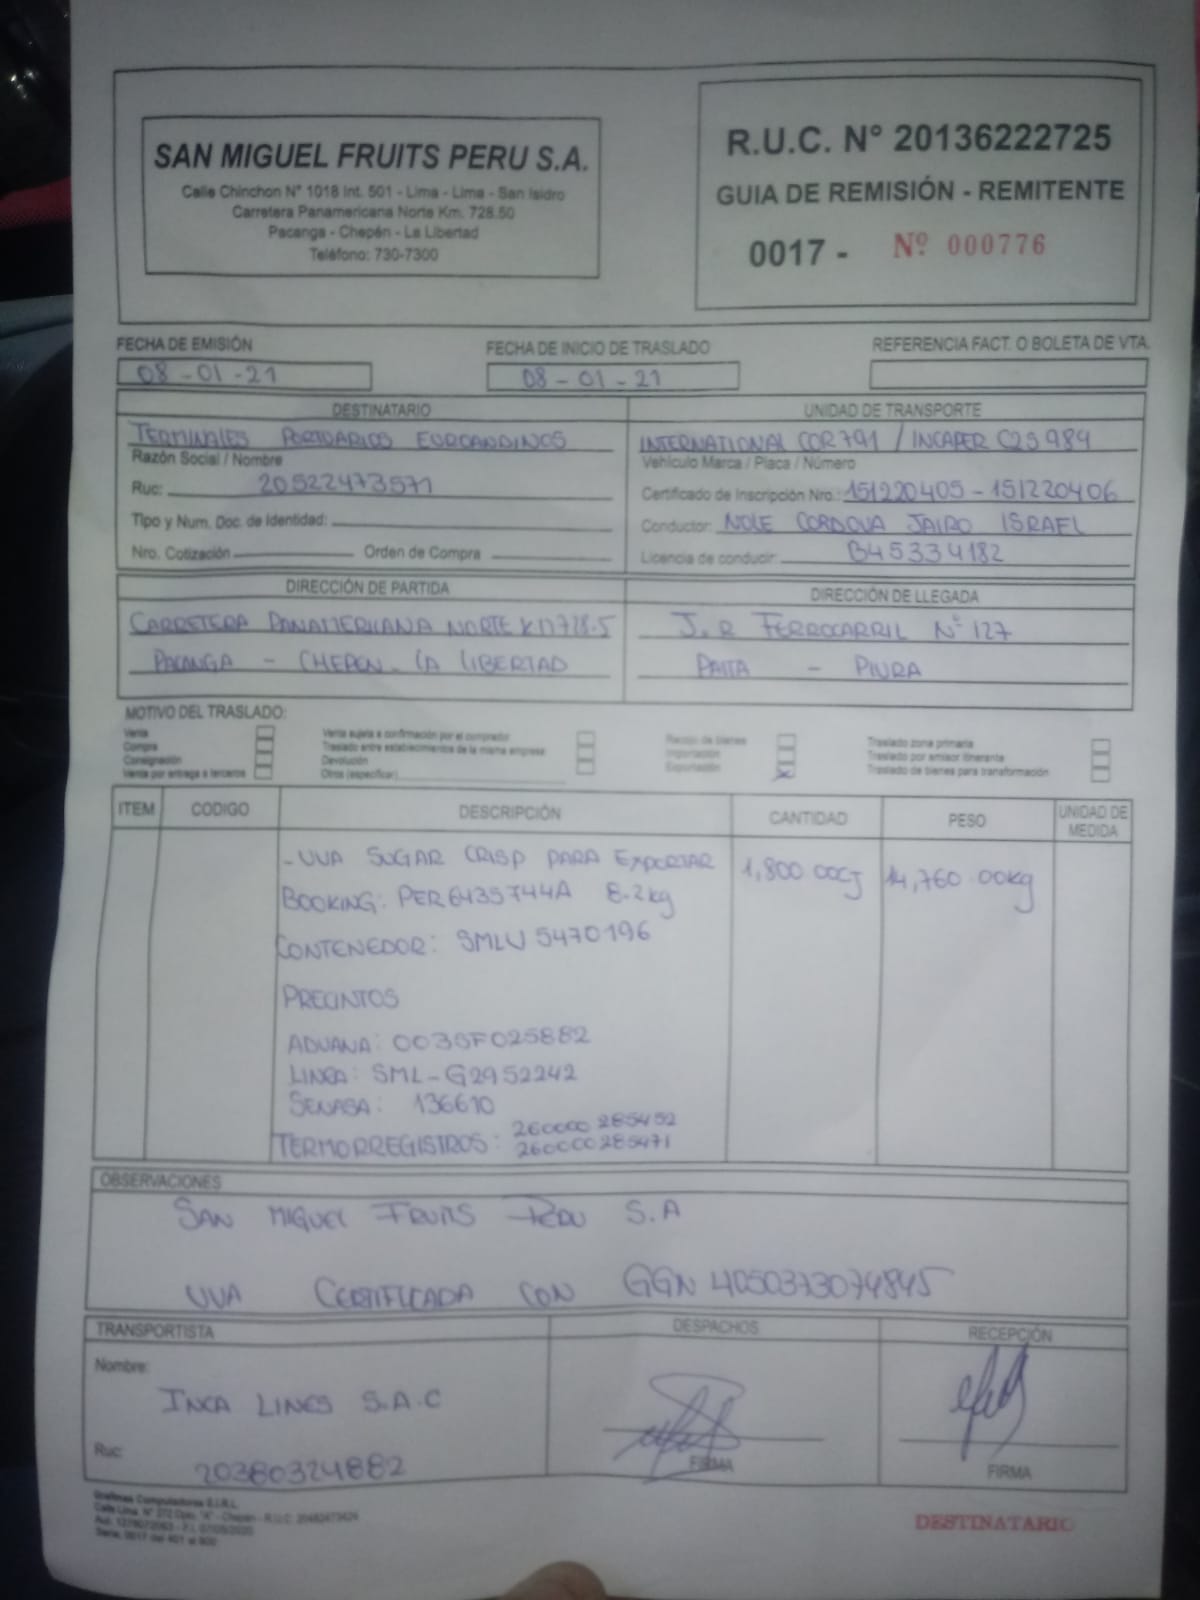 SAN MIGUEL FRUITS PERU S.A.
Calle Chinchon N° 1018 Int. 501 - Lima - Lima - San Isidro
Carretera Panamericana Norte Km. 728.50
Pacanga - Chepén - La Libertad
Teléfono: 730-7300
R.U.C. N° 20136222725
GUIA DE REMISIÓN - REMITENTE
0017 - Nº 000776
FECHA DE EMISIÓN
08-01-21
FECHA DE INICIO DE TRASLADO
08-01-21
REFERENCIA FACT. O BOLETA DE VTA.
DESTINATARIO
TERMINALES PORTUARIOS EUROANDINOS
Razón Social / Nombre
Ruc: 20522473571
Tipo y Num. Doc. de Identidad:
Nro. Cotización Orden de Compra
UNIDAD DE TRANSPORTE
INTERNATIONAL COR791 / INCAPER C2S984
Vehículo Marca / Placa / Número
Certificado de Inscripción Nro.: 151220405-151220406
Conductor: NOLE CORDOVA JAIRO ISRAEL
Licencia de conducir: B45334182
DIRECCIÓN DE PARTIDA
CARRETERA PANAMERICANA NORTE KM728.5
PACANGA - CHEPEN - LA LIBERTAD
DIRECCIÓN DE LLEGADA
J.R FERROCARRIL Nº 127
PAITA - PIURA
MOTIVO DEL TRASLADO:
Venta
Compra
Consignación
Venta por entrega a terceros
Venta sujeta a confirmación por el comprador
Traslado entre establecimientos de la misma empresa
Devolución
Otros (especificar)
Recojo de bienes
Importación
Exportación
Traslado zona primaria
Traslado por emisor itinerante
Traslado de bienes para transformación
ITEM CODIGO DESCRIPCIÓN CANTIDAD PESO UNIDAD DE MEDIDA
- UVA SUGAR CRISP PARA EXPORTAR 1,800.00CJ 14,760.00kg
BOOKING: PER6435744A 8.2kg
CONTENEDOR: SMLU 5470196
PRECINTOS
ADUANA: 003SF025882
LINEA: SML-G2952242
SENASA: 136610
TERMORREGISTROS: 260000285452
260000285471
OBSERVACIONES
SAN MIGUEL FRUITS PERU S.A
UVA CERTIFICADA CON GGN 4050373074845
TRANSPORTISTA
Nombre:
INCA LINES S.A.C
Ruc: 20380324882
DESPACHOS
FIRMA
RECEPCIÓN
FIRMA
Serie: 0017 del 401 al 900
DESTINATARIO